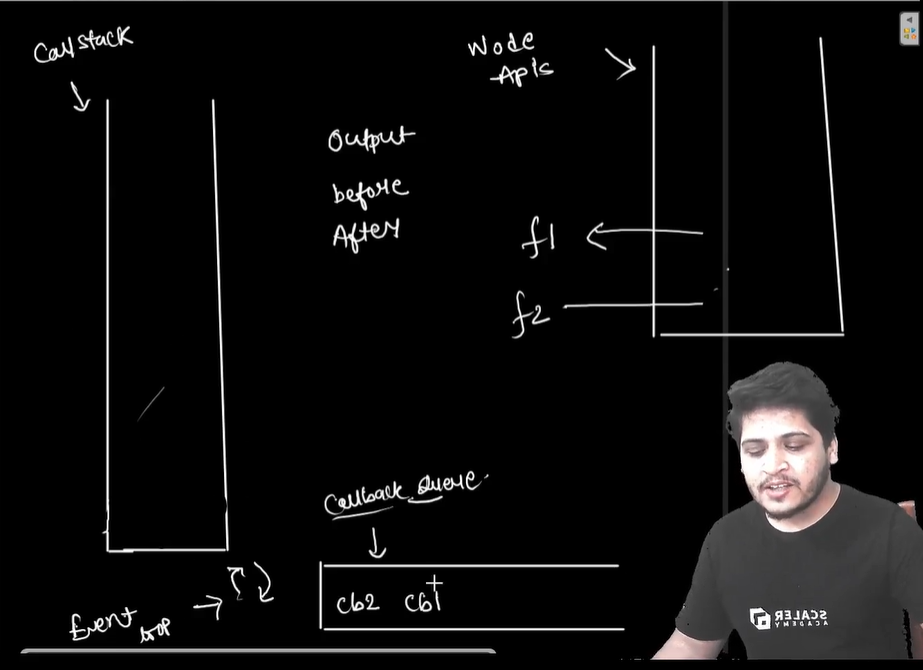 Callstack
Node
Apis
Output
before
After
f1
f2
Callback Queue
cb2 cb1
Event
loop
SCALER
ACADEMY